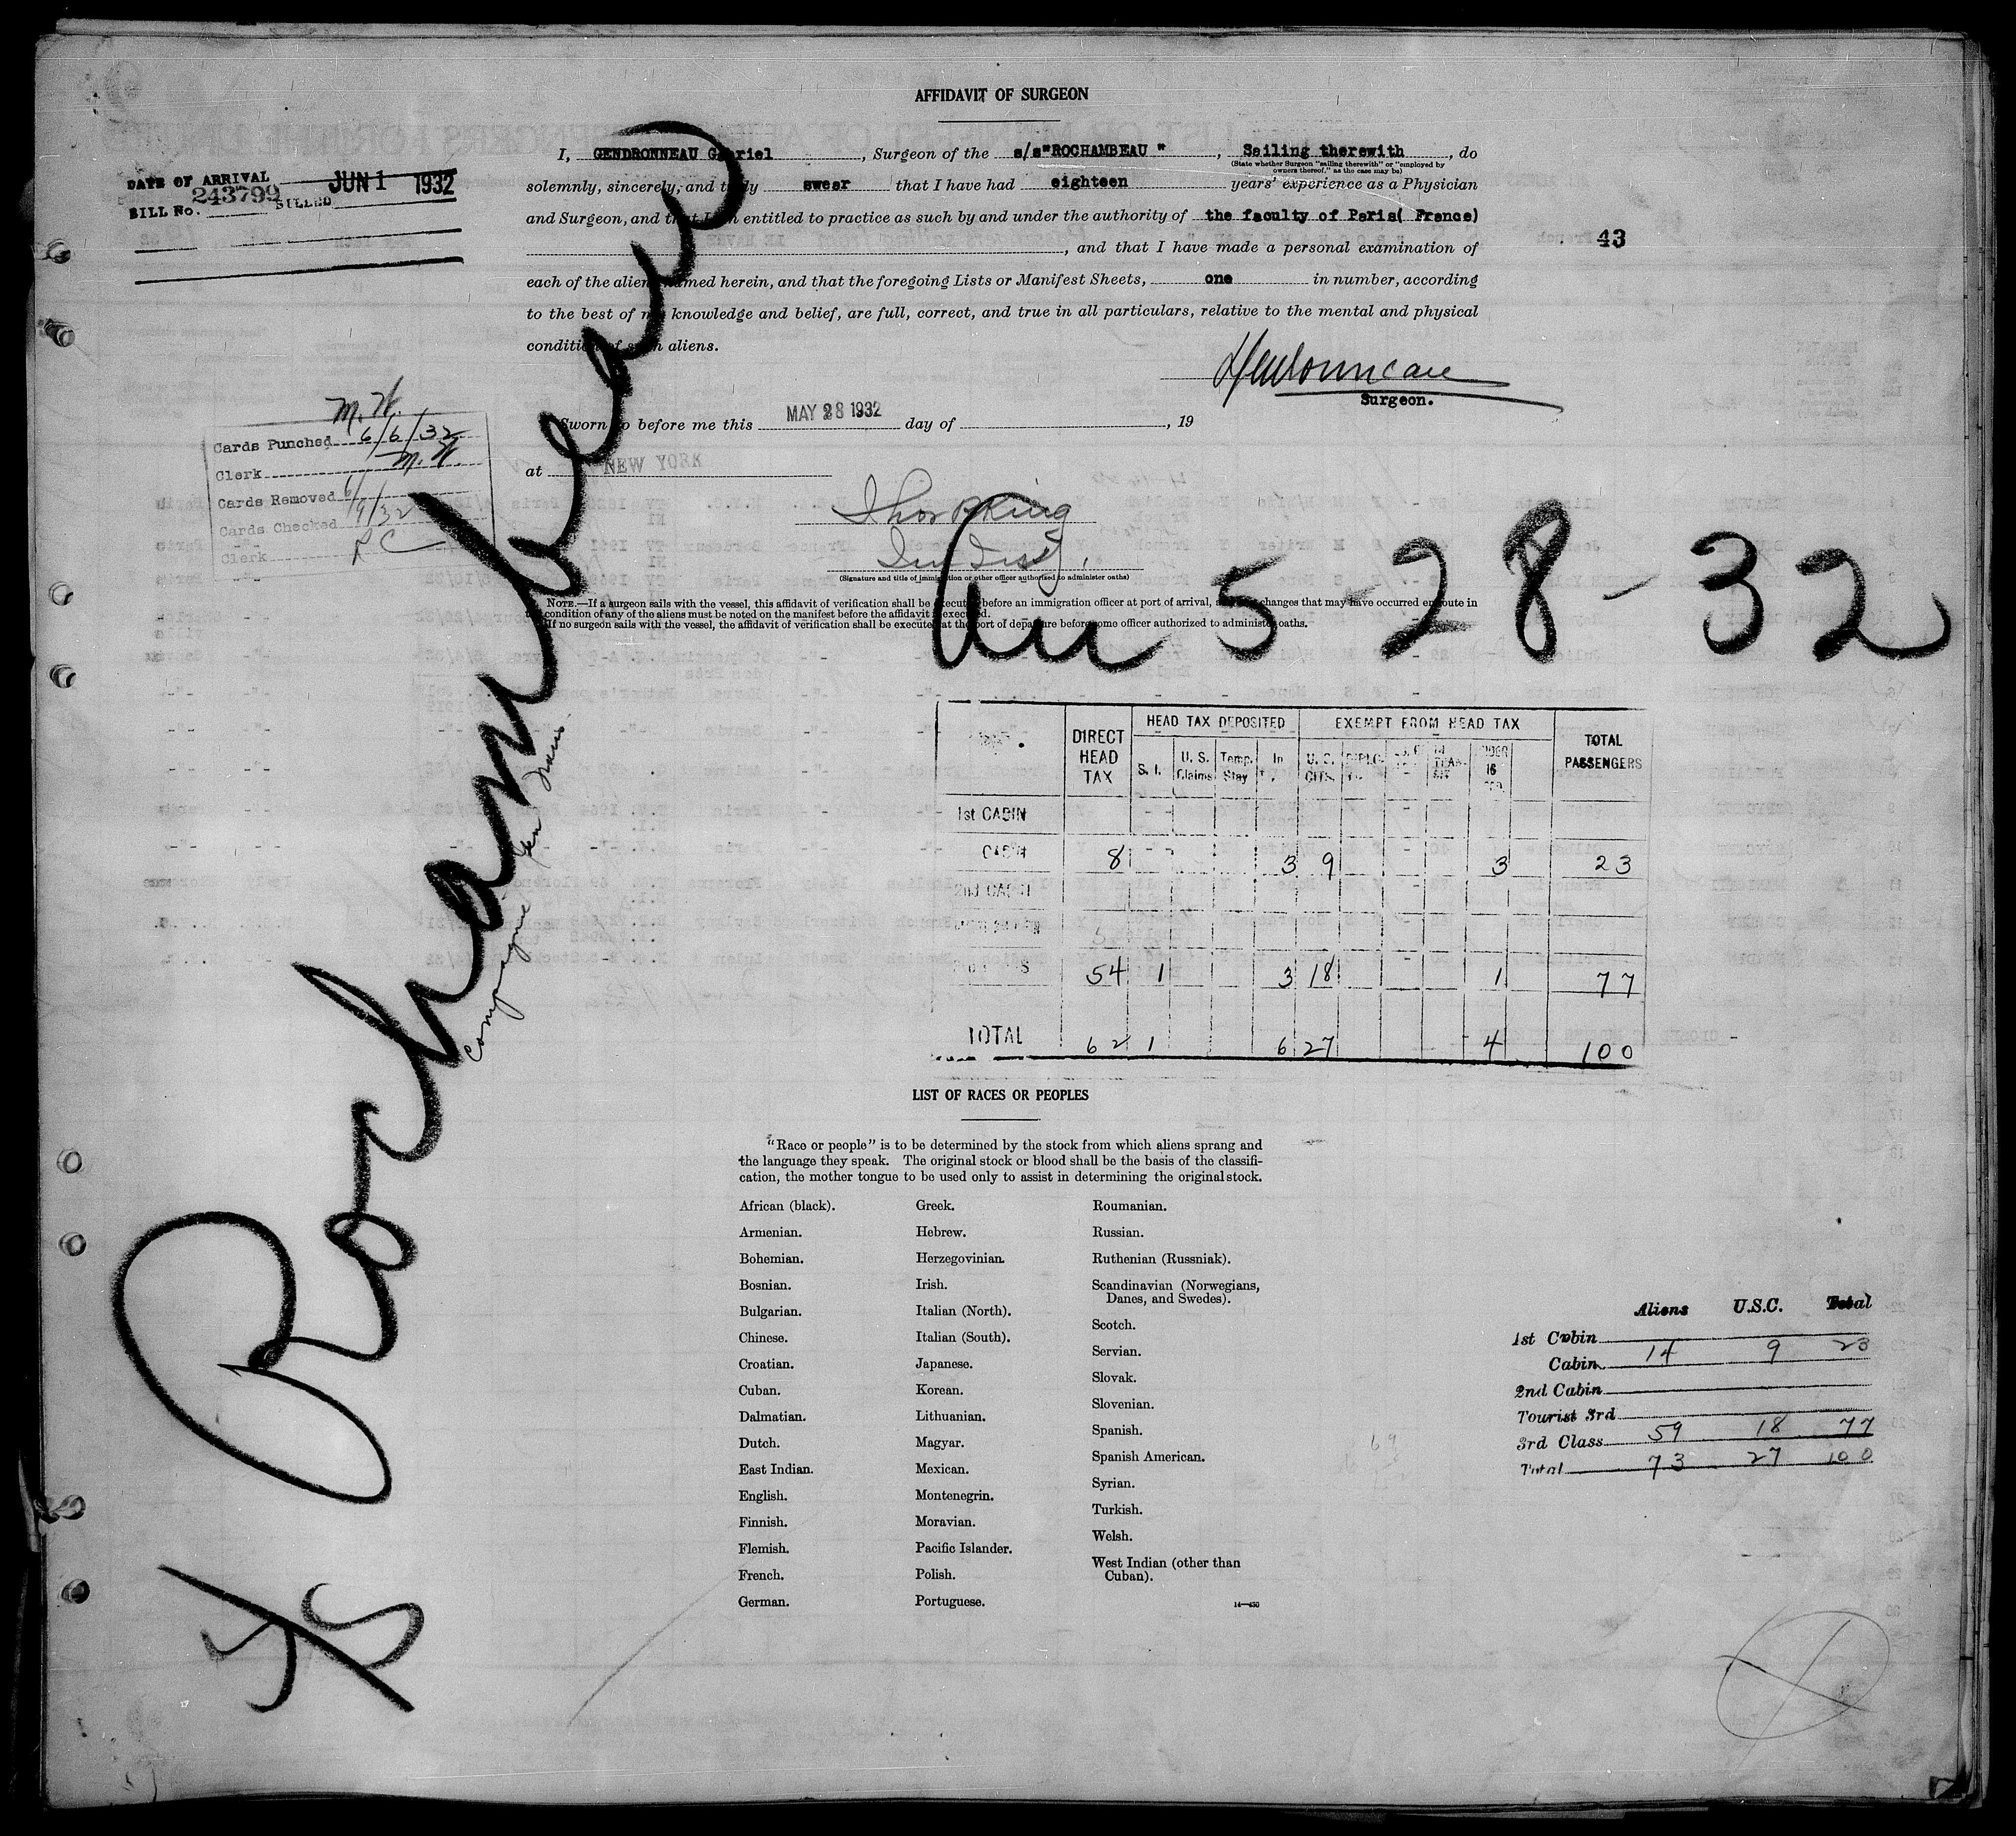 AFFIDAVIT OF SURGEON
I, GENDRONNEAU Gabriel, Surgeon of the s/s "ROCHAMBEAU", Sailing therewith, do
(State whether Surgeon "sailing therewith" or "employed by owners thereof," as the case may be)
solemnly, sincerely, and truly swear that I have had eighteen years' experience as a Physician
and Surgeon, and that I am entitled to practice as such by and under the authority of the faculty of Paris( France)
, and that I have made a personal examination of
each of the aliens named herein, and that the foregoing Lists or Manifest Sheets, one in number, according
to the best of my knowledge and belief, are full, correct, and true in all particulars, relative to the mental and physical
condition of such aliens.
DATE OF ARRIVAL
BILL No. 243799 BILLED JUN 1 1932
43
Surgeon.
Sworn to before me this MAY 28 1932 day of , 19
at NEW YORK
(Signature and title of immigration or other officer authorized to administer oaths)
NOTE.—If a surgeon sails with the vessel, this affidavit of verification shall be executed before an immigration officer at port of arrival, and any changes that may have occurred en route in
the condition of any of the aliens must be noted on the manifest before the affidavit is executed.
If no surgeon sails with the vessel, the affidavit of verification shall be executed at the port of departure before some officer authorized to administer oaths.
M. W.
Cards Punched 6/6/32
Clerk M. W.
Cards Removed
Cards Checked 9/32
Clerk R C
S/S Rochambeau
Compagnie Gen Trans
Arr 5-28-32
DIRECT HEAD TAX
HEAD TAX DEPOSITED
EXEMPT FROM HEAD TAX
TOTAL PASSENGERS
S. I. U. S. Claims Temp. Stay In U. S. CITS. DIPLO. UNDER 16
1st CABIN
CABIN 8 3 9 3 23
2nd CABIN
54 1 3 18 1 77
TOTAL 62 1 6 27 4 100
LIST OF RACES OR PEOPLES
"Race or people" is to be determined by the stock from which aliens sprang and
the language they speak. The original stock or blood shall be the basis of the classifi-
cation, the mother tongue to be used only to assist in determining the original stock.
African (black).
Armenian.
Bohemian.
Bosnian.
Bulgarian.
Chinese.
Croatian.
Cuban.
Dalmatian.
Dutch.
East Indian.
English.
Finnish.
Flemish.
French.
German.
Greek.
Hebrew.
Herzegovinian.
Irish.
Italian (North).
Italian (South).
Japanese.
Korean.
Lithuanian.
Magyar.
Mexican.
Montenegrin.
Moravian.
Pacific Islander.
Polish.
Portuguese.
Roumanian.
Russian.
Ruthenian (Russniak).
Scandinavian (Norwegians,
Danes, and Swedes).
Scotch.
Servian.
Slovak.
Slovenian.
Spanish.
Spanish American.
Syrian.
Turkish.
Welsh.
West Indian (other than
Cuban).
14—430
Aliens U.S.C. Total
1st Cabin
Cabin 14 9 23
2nd Cabin
Tourist 3rd
3rd Class 59 18 77
Total 73 27 100